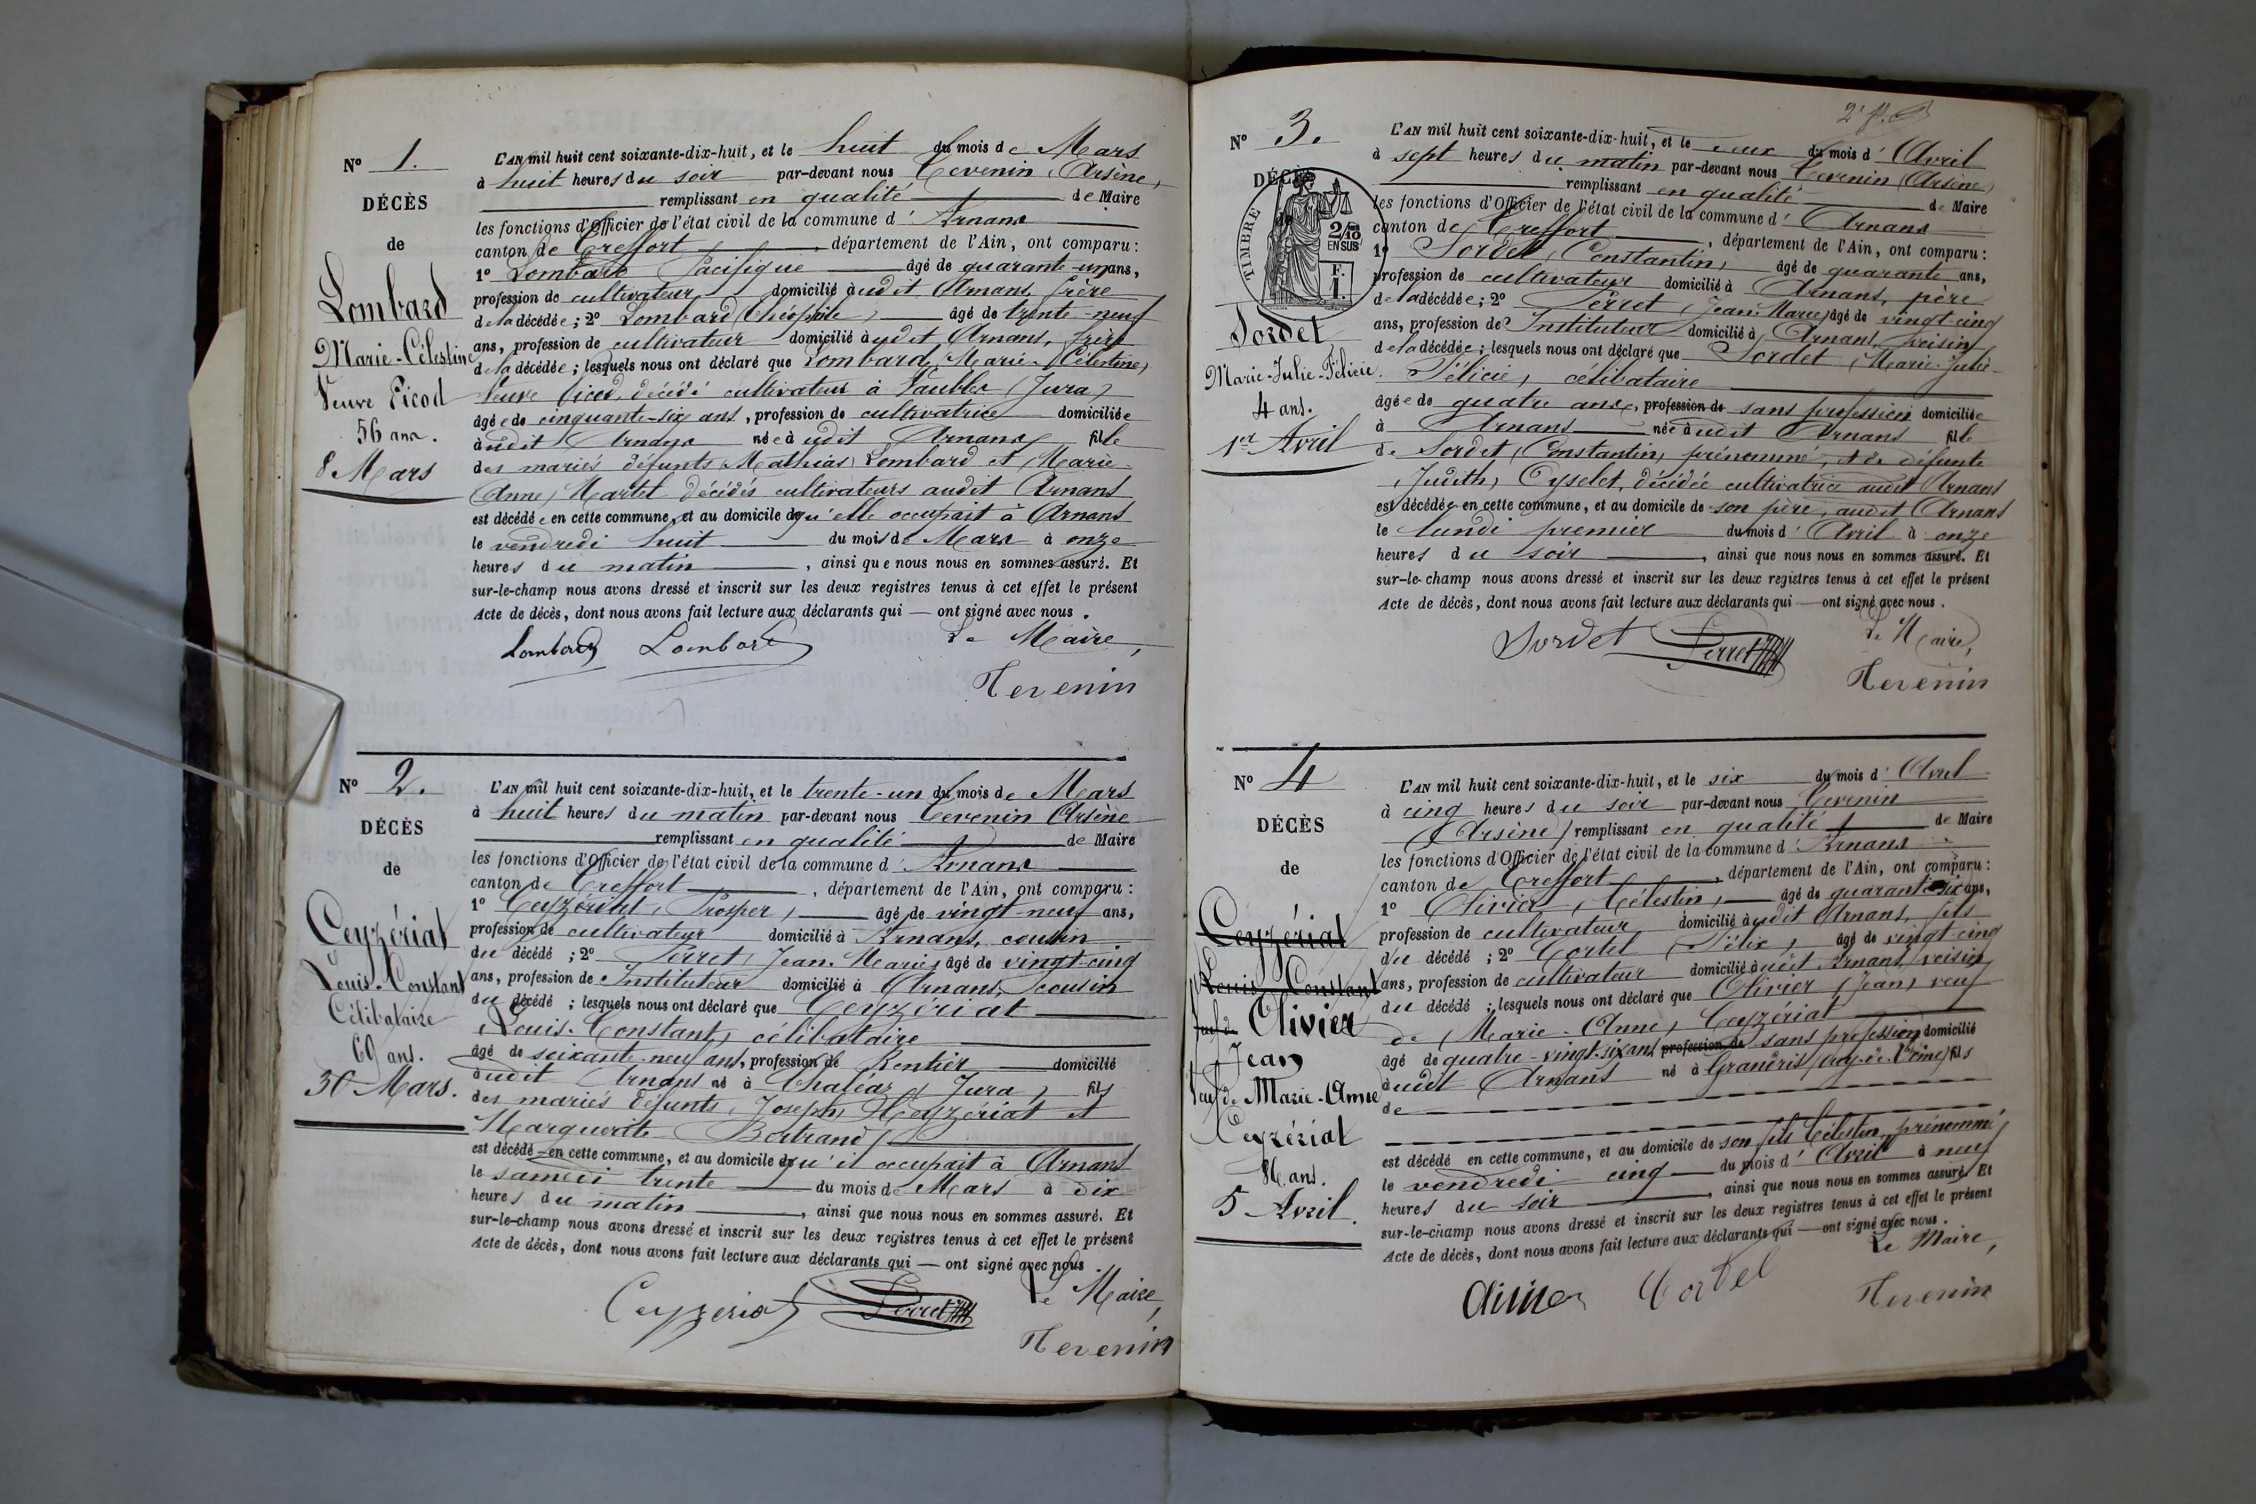 N° 1.
DÉCÈS
de
Lombard
Marie-Célestine
Veuve Picod
56 ans.
8 Mars
L'AN mil huit cent soixante-dix-huit, et le huit du mois de Mars
à huit heures du soir par-devant nous Tevenin (Arsène)
remplissant en qualité de Maire
les fonctions d'Officier de l'état civil de la commune d'Arnans
canton de Treffort, département de l'Ain, ont comparu:
1° Lombard Pacifique âgé de quarante-un ans,
profession de cultivateur domicilié audit Arnans, frère
de la décédée; 2° Lombard (Théophile) âgé de trente-neuf
ans, profession de cultivateur domicilié audit Arnans, frère
de la décédée; lesquels nous ont déclaré que Lombard (Marie-Célestine)
Veuve Picod, décédé cultivateur à (Jura)
âgée de cinquante-six ans, profession de cultivatrice domiciliée
audit Arnans née audit Arnans fille
des mariés défunts (Mathias) Lombard et (Marie-
Anne) Martel décédés cultivateurs audit Arnans
est décédée en cette commune, et au domicile qu'elle occupait à Arnans
le vendredi huit du mois de Mars à onze
heures du matin, ainsi que nous nous en sommes assuré. Et
sur-le-champ nous avons dressé et inscrit sur les deux registres tenus à cet effet le présent
Acte de décès, dont nous avons fait lecture aux déclarants qui — ont signé avec nous.
Lombard Lombard Le Maire,
Tevenin
N° 2.
DÉCÈS
de
Ceyzériat
Louis-Constant
Célibataire
69 ans.
30 Mars.
L'AN mil huit cent soixante-dix-huit, et le trente-un du mois de Mars
à huit heures du matin par-devant nous Tevenin Arsène
remplissant en qualité de Maire
les fonctions d'Officier de l'état civil de la commune d'Arnans
canton de Treffort, département de l'Ain, ont comparu:
1° Ceyzériat, Prosper, âgé de vingt-neuf ans,
profession de cultivateur domicilié à Arnans, cousin
du décédé; 2° Perret, Jean-Marie, âgé de vingt-cinq
ans, profession de Instituteur domicilié à Arnans, cousin
du décédé; lesquels nous ont déclaré que Ceyzériat
(Louis-Constant) célibataire
âgé de soixante-neuf ans, profession de Rentier domicilié
audit Arnans né à Chaléaz (Jura) fils
des mariés défunts, (Joseph) Ceyzériat et
Marguerite Bertrand
est décédé en cette commune, et au domicile qu'il occupait à Arnans
le samedi trente du mois de Mars à dix
heures du matin, ainsi que nous nous en sommes assuré. Et
sur-le-champ nous avons dressé et inscrit sur les deux registres tenus à cet effet le présent
Acte de décès, dont nous avons fait lecture aux déclarants qui — ont signé avec nous
Ceyzériat Perret Le Maire,
Tevenin
N° 3.
DÉCÈS
TIMBRE
2/10
EN SUS
F.
I.
Sordet
Marie-Julie-Félicie.
4 ans.
1er Avril
L'AN mil huit cent soixante-dix-huit, et le deux du mois d'Avril
à sept heures du matin par-devant nous Tevenin (Arsène)
remplissant en qualité de Maire
les fonctions d'Officier de l'état civil de la commune d'Arnans
canton de Treffort, département de l'Ain, ont comparu:
1° Sordet, Constantin, âgé de quarante ans,
profession de cultivateur domicilié à Arnans, père
de la décédée; 2° Perret (Jean-Marie) âgé de vingt-cinq
ans, profession de Instituteur domicilié à Arnans, voisin
de la décédée; lesquels nous ont déclaré que Sordet (Marie-Julie-
Félicie) célibataire
âgée de quatre ans, profession de sans profession domiciliée
à Arnans née audit Arnans fille
de Sordet (Constantin) prénommé, et de défunte
(Judith) Oyselet, décédée cultivatrice audit Arnans
est décédée en cette commune, et au domicile de son père, audit Arnans
le lundi premier du mois d'Avril à onze
heures du soir, ainsi que nous nous en sommes assuré. Et
sur-le-champ nous avons dressé et inscrit sur les deux registres tenus à cet effet le présent
Acte de décès, dont nous avons fait lecture aux déclarants qui — ont signé avec nous.
Sordet Perret Le Maire,
Tevenin
N° 4
DÉCÈS
de
Ceyzériat
Louis-Constant
Olivier
Jean
Veuf de Marie-Anne
Ceyzériat
86 ans.
5 Avril.
L'AN mil huit cent soixante-dix-huit, et le six du mois d'Avril
à cinq heures du soir par-devant nous Tevenin
(Arsène) remplissant en qualité de Maire
les fonctions d'Officier de l'état civil de la commune d'Arnans
canton de Treffort, département de l'Ain, ont comparu:
1° Olivier, Célestin, âgé de quarante-six ans,
profession de cultivateur domicilié audit Arnans, fils
du décédé; 2° Cortel (Félix) âgé de vingt-cinq
ans, profession de cultivateur domicilié audit Arnans, voisin
du décédé; lesquels nous ont déclaré que Olivier (Jean) veuf
de (Marie-Anne) Ceyzériat
âgé de quatre-vingt-six ans profession de sans profession domicilié
audit Arnans né à fils
de
est décédé en cette commune, et au domicile de son fils Célestin, prénommé
le vendredi cinq du mois d'Avril à neuf
heures du soir, ainsi que nous nous en sommes assuré. Et
sur-le-champ nous avons dressé et inscrit sur les deux registres tenus à cet effet le présent
Acte de décès, dont nous avons fait lecture aux déclarants qui — ont signé avec nous.
Olivier Cortel Le Maire,
Tevenin